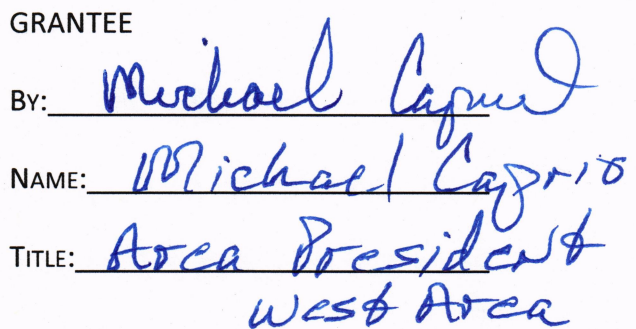 GRANTEE
BY: Michael Caprio
NAME: Michael Caprio
TITLE: Area President
West Area